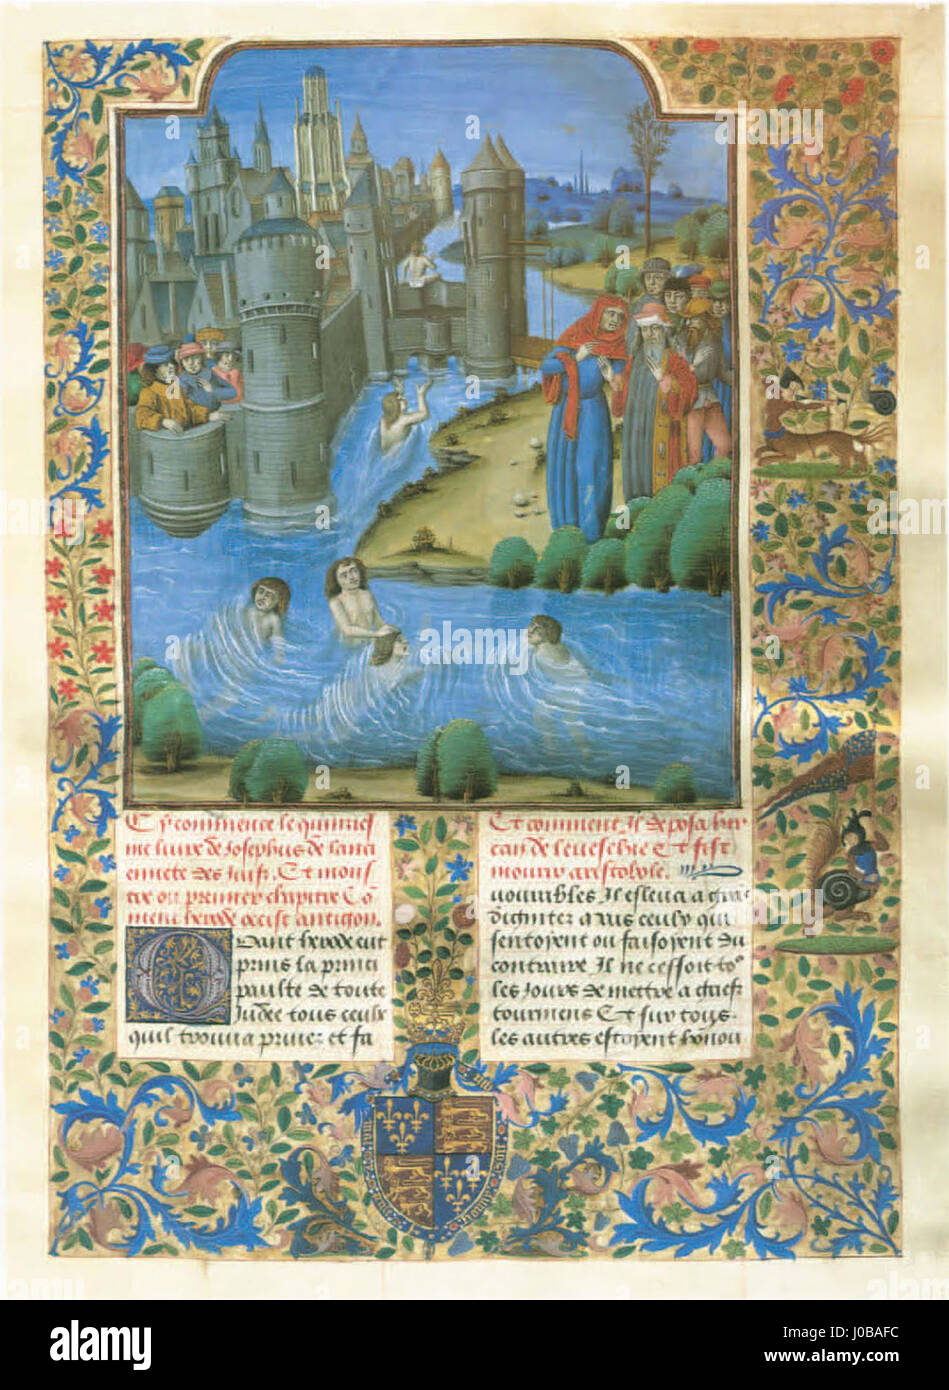 Cy commence le quinzies
me livre de Josephus de lanci
ennete des Juifz. Et mons
tre ou premier chapitre Co
ment herode occist antigon.
Quant herode eut
prins la princi
paulte de toute
Judee tous ceulx
quil trouva priuez et fa
Et comment Il deposa hir
can de leueschie Et fist
mourir aristobole.
uourables Il esleua a grās
dichnitez a tous ceulx qui
sentoyent ou faisoyent du
contraire Il ne cessoit to9
les Jours de mettre a grief
tourmens Et sur tous
les autres estoyent honou
alamy
Image ID: J0BAFC
www.alamy.com